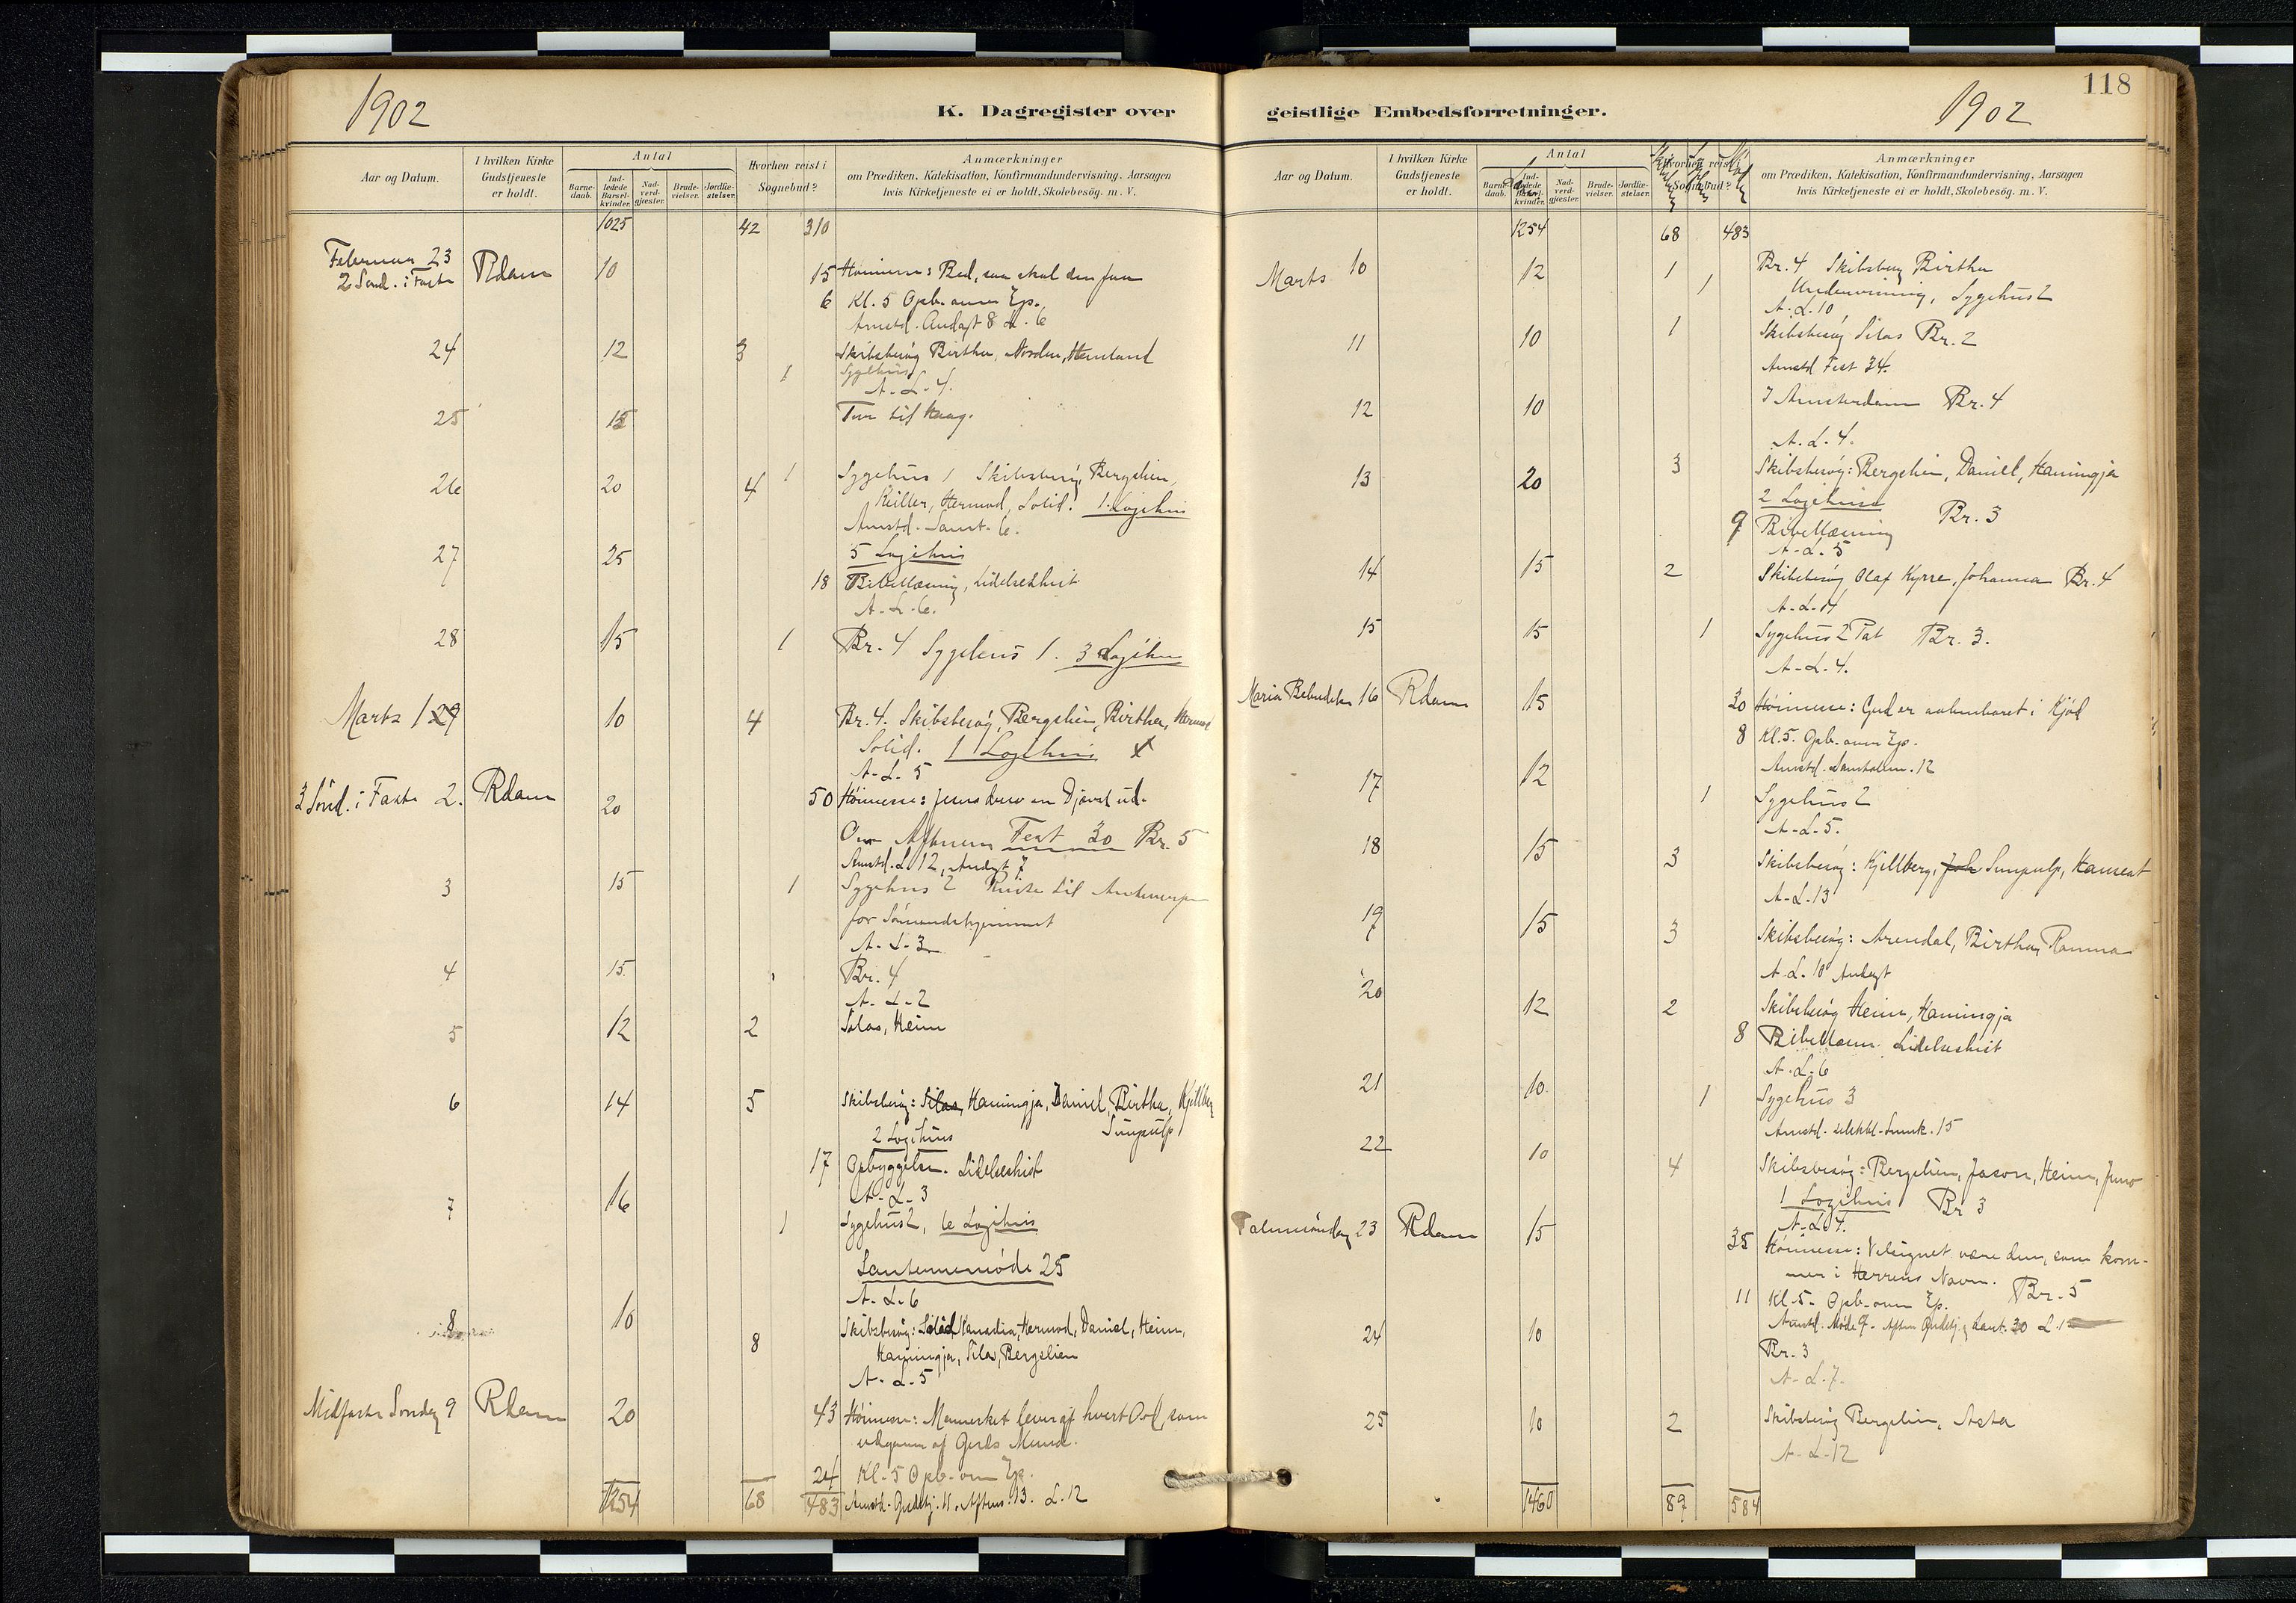 1902
K. Dagregister over
Aar og Datum.
I hvilken Kirke Gudstjeneste er holdt.
Antal
Barne-daab.
Ind-ledede Barsel-kvinder.
Nad-verd-gjæster.
Brude-vielser.
Jordfæ-stelser.
Hvorhen reist i Sognebud?
Anmærkninger
om Prædiken, Katekisation, Konfirmandundervisning. Aarsagen
hvis Kirketjeneste ei er holdt, Skolebesög. m. V.
1025 42 310
Februar 23
2 Sönd. i Faste Rdam 10 15 Höimesse: Bed, saa skal den faa
6 Kl. 5 Opb. over Ep.
Amstd. Andagt 8 L. 6
24 12 3 Skibsbesög Birtha, Norden, Hemland
1 Sygehus
A-L-4.
25 15 Tur til Haag.
26 20 4 1 Sygehus 1 Skibsbesög Bergslien,
Hermod, Solid. 1 Logihus
Amstd. 6.
27 25 5 Logihus
18 Bibellæsning, Lidelseshist
A-L-6.
28 15 1 Br. 4 Sygehus 1. 3 Logihus
Marts 1 29 10 4 Br. 4. Skibsbesög, Bergslien, Birtha, Hermod
Solid. 1 Logihus
A-L. 5
3 Sönd. i Faste 2. Rdam 20 50 Höimesse: Jesus drev en Djævel ud.
Om Aftenen Fest 30 Br. 5
Amstd. L. 12, Andagt 7
3 15 1 Sygehus 2 Reiste til Antwerpen
for Sömandshjemmet
A-L-3
4 15 Br. 4
A-L-2
5 12 2 Silas, Heim
6 14 5 Skibsbesög: Silas, Hamingja, Daniel, Birtha, Kjellberg
2 Logihus Sunpulp
17 Opbyggelse. Lidelseshist
A-L-3
7 16 1 Sygehus 2, 6 Logihus
Lanternemöde 25
A-L-6
8 10 8 Skibsbesög: Solid, Hermod, Daniel, Heim,
Hamingja, Silas, Bergslien
A-L-5
Midfaste Sondag 9 Rdam 20 43 Höimesse: Mennesket lever af hvert Ord, som
udgaar af Guds Mund.
24 Kl. 5 Opb. over Ep.
1254 68 483 Amstd. Gudstj. 11. Aftens. 13. L. 12
118
geistlige Embedsforretninger.
1902
Aar og Datum.
I hvilken Kirke Gudstjeneste er holdt.
Antal
Barne-daab.
Ind-ledede Barsel-kvinder.
Nad-verd-gjæster.
Brude-vielser.
Jordfæ-stelser.
Hvorhen reist i Sognebud?
Anmærkninger
om Prædiken, Katekisation, Konfirmandundervisning, Aarsagen
hvis Kirketjeneste ei er holdt, Skolebesög. m. V.
1254 68 483
Marts 10 12 1 Br. 4 Skibsbesög Birtha
1 Undervisning, Sygehus 2
A-L. 10
11 10 1 Skibsbesög Silas Br. 2
Amstd Fest 34.
12 10 I Amsterdam Br. 4
A-L. 4.
13 20 3 Skibsbesög: Bergslien, Daniel, Hamingja
2 Logihuse Br. 3
9 Bibellæsning
A-L. 5
14 15 2 Skibsbesög Olaf Kyrre, Johanna Br. 4
A-L-14
15 15 1 Sygehus 2 Pat Br. 3.
A-L. 4.
Maria Bebudelse 16 Rdam 15 30 Höimesse: Gud er aabenbaret i Kjöd
8 Kl. 5. Opb. over Ep.
Amstd. 12
17 12 1 Sygehus 2
A-L-5.
18 15 3 Skibsbesög: Kjellberg, Joh Sunpulp, Kamcat
A-L. 13
19 15 3 Skibsbesög: Arendal, Birtha, Ranma
A. L. 10 Andagt
20 12 2 Skibsbesög Heim, Hamingja
8 Bibellæsn. Lidelseshist
A-L. 6
21 10 1 Sygehus 3
Amstd. 15
22 10 4 Skibsbesög: Bergslien, Jason, Heim, Juno
1 Logihus Br 3
A-L. 4.
Palmesöndag 23 Rdam 15 35 Höimesse: Velsignet være den, som kom-
mer i Herrens Navn. Br. 5
11 Kl. 5. Opb. over Ep.
Amstd. Möde 9. Aften Gudstj. Lant. 30 L. 1
24 10 Br. 3
A-L. 7.
25 10 2 Skibsbesög Bergslien, Asta
A-L-12
1460 89 584